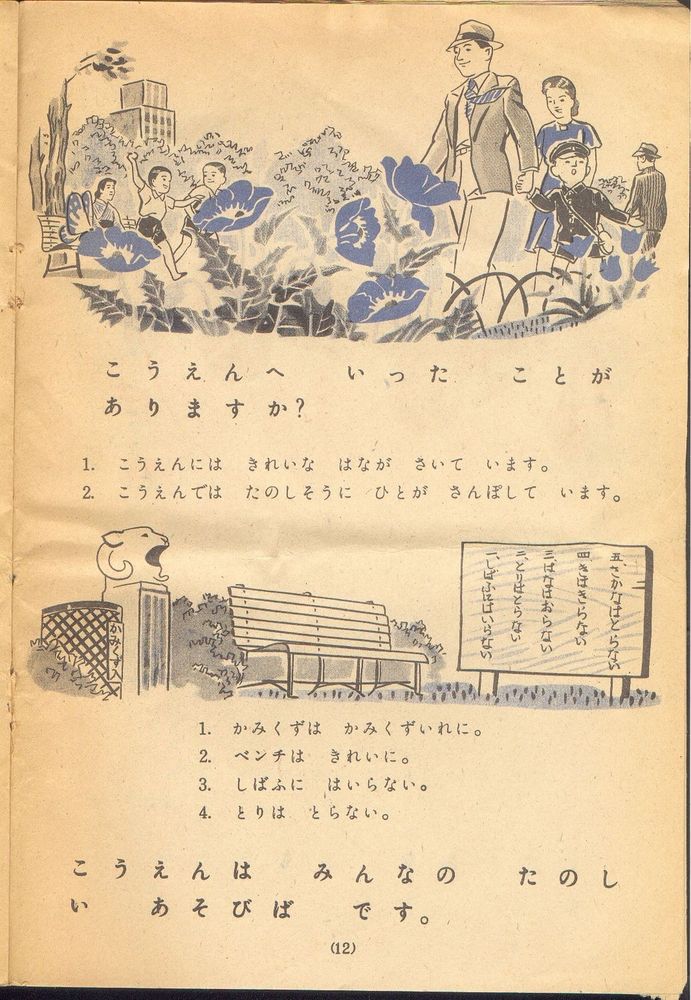 こうえんへ いった ことが
ありますか?
1. こうえんには きれいな はなが さいて います。
2. こうえんでは たのしそうに ひとが さんぽして います。
かみくず入
一、しばふにはいらない
二、とりはとらない
三、はなはおらない
四、きはきらない
五、さかなはとらない
1. かみくずは かみくずいれに。
2. ベンチは きれいに。
3. しばふに はいらない。
4. とりは とらない。
こうえんは みんなの たのし
い あそびば です。
(12)